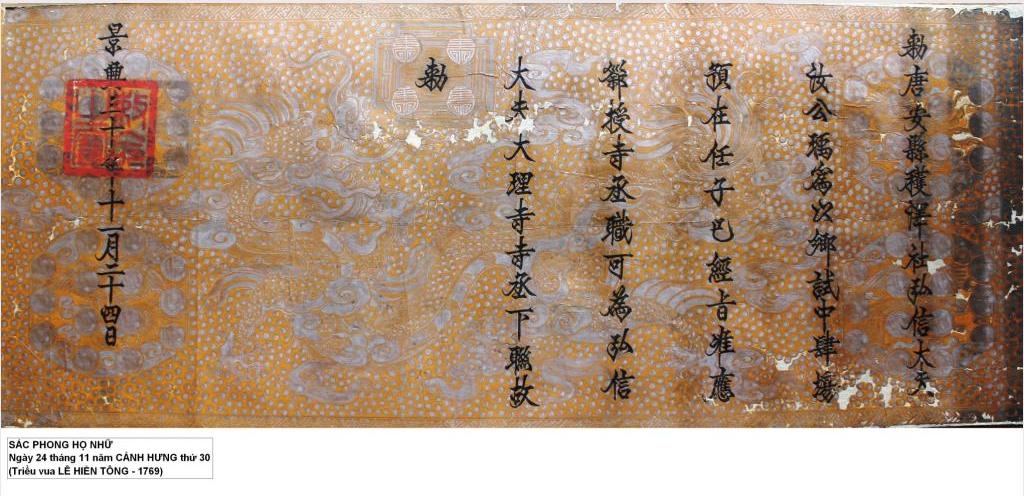 勅唐安縣穫澤社弘信大夫
汝公瑀為以鄉試中肆場
預在任子已經旨准應
鄒授寺丞職可為弘信
大夫大理寺寺丞下聯故
勅
景興三十年十一月二十四日
SẮC PHONG HỌ NHỮ
Ngày 24 tháng 11 năm CẢNH HƯNG thứ 30
(Triều vua LÊ HIỂN TÔNG - 1769)